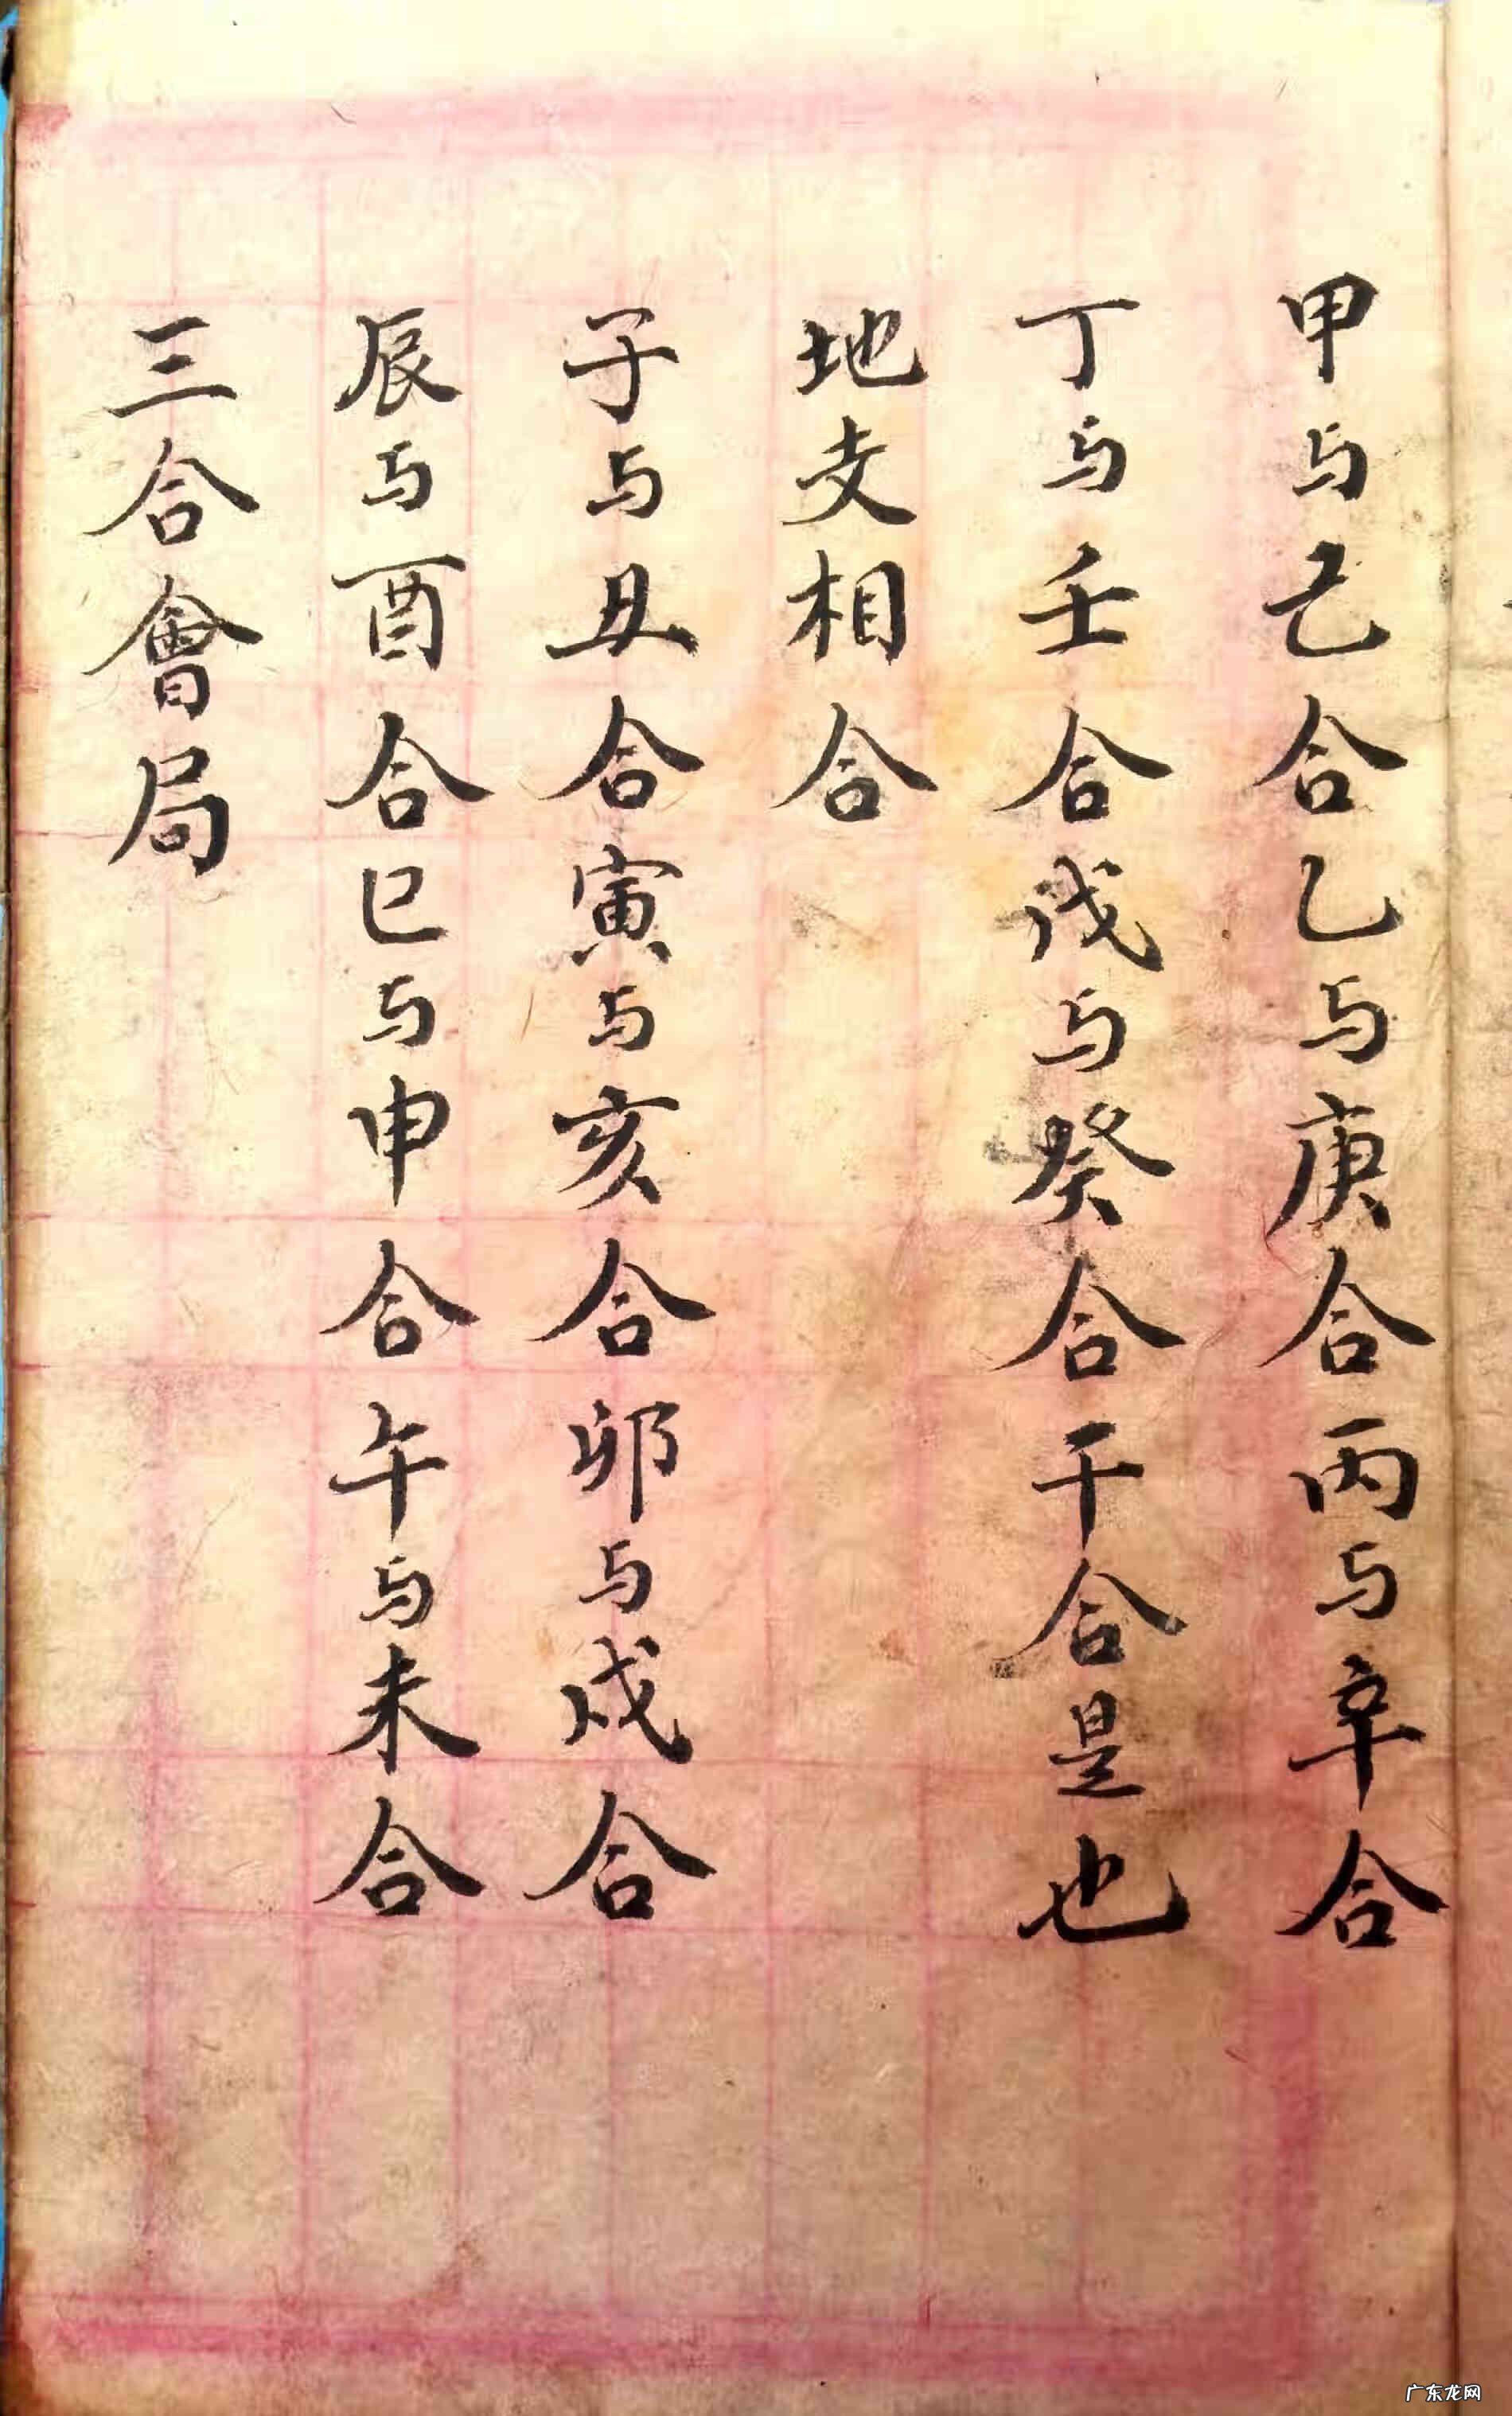 甲与己合乙与庚合丙与辛合
丁与壬合戊与癸合干合是也
地支相合
子与丑合寅与亥合卯与戌合
辰与酉合巳与申合午与未合
三合會局
广东龙网